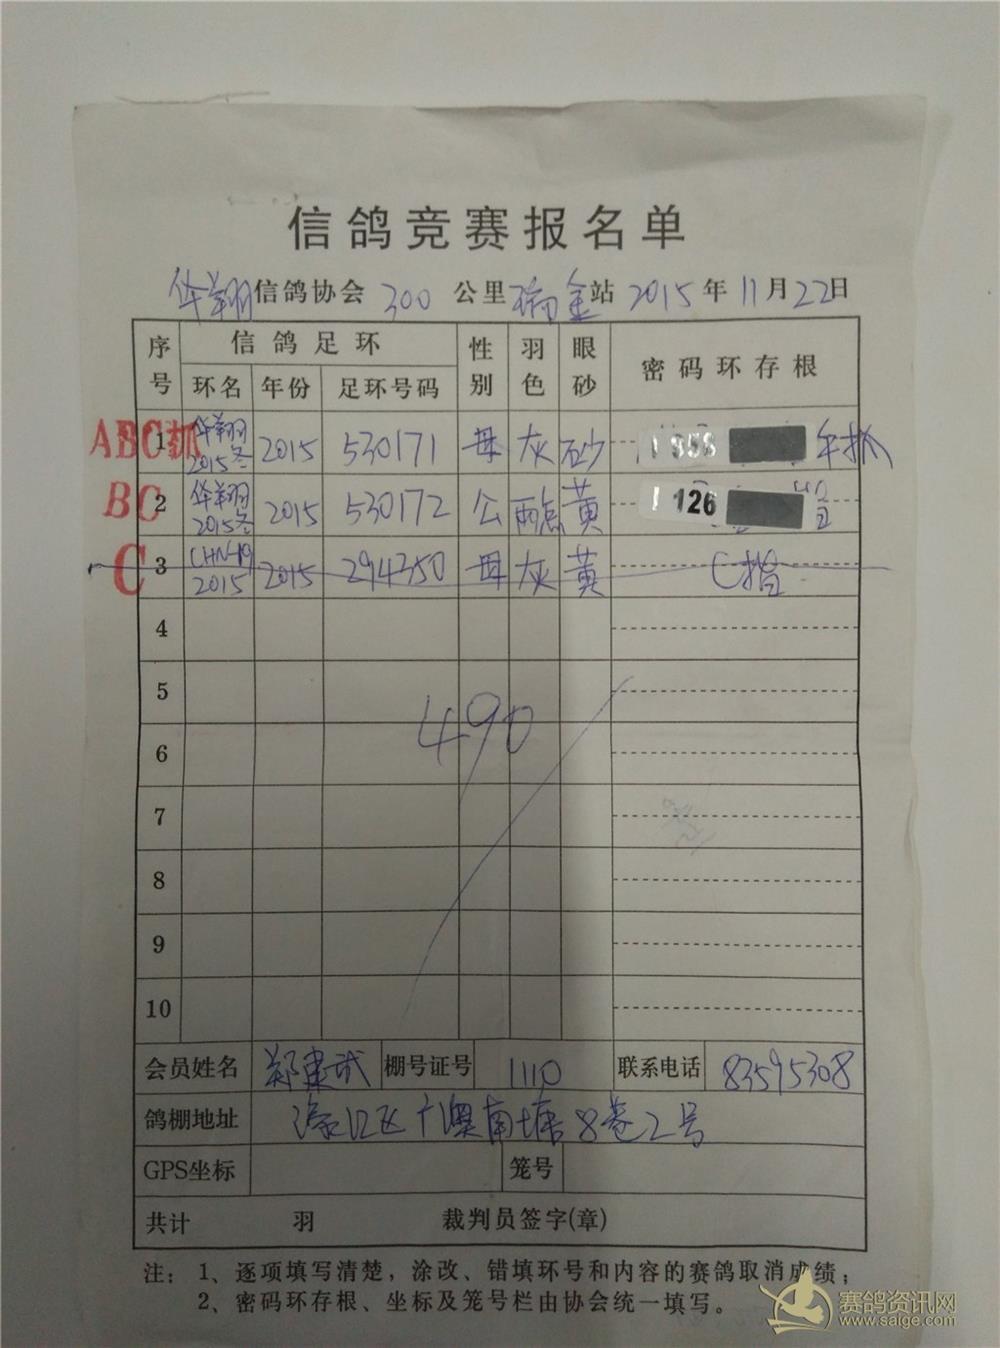 信鸽竞赛报名单
华翔信鸽协会 300 公里瑞金站 2015 年 11 月 22 日
序号 信鸽足环 性别 羽色 眼砂 密码环存根
环名 年份 足环号码
ABC 1 华翔 2015冬 2015 530171 母 灰 砂
BC 2 华翔 2015冬 2015 530172 公 雨点 黄 126
C 3 CHN-19 2015 2015 294350 母 灰 黄 C指
4
5
490
6
7
8
9
10
会员姓名 郑建 棚号证号 1110 联系电话 83595308
鸽棚地址 区广澳南塘8巷2号
GPS坐标 笼号
共计 羽 裁判员签字(章)
注：1、逐项填写清楚，涂改、错填环号和内容的赛鸽取消成绩；
2、密码环存根、坐标及笼号栏由协会统一填写。
赛鸽资讯网
www.saige.com